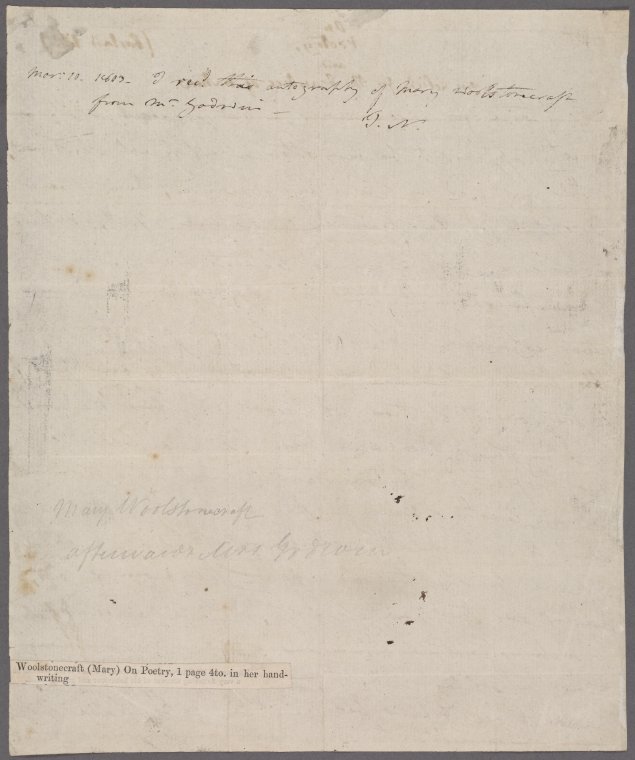 Mar: 10. 1803. I recd. this autography of Mary Woolstonecraft
from Mr. Godwin —
J. N.
Mary Woolstonecraft
afterwards Mrs. Godwin
Woolstonecraft (Mary) On Poetry, 1 page 4to. in her hand-
writing